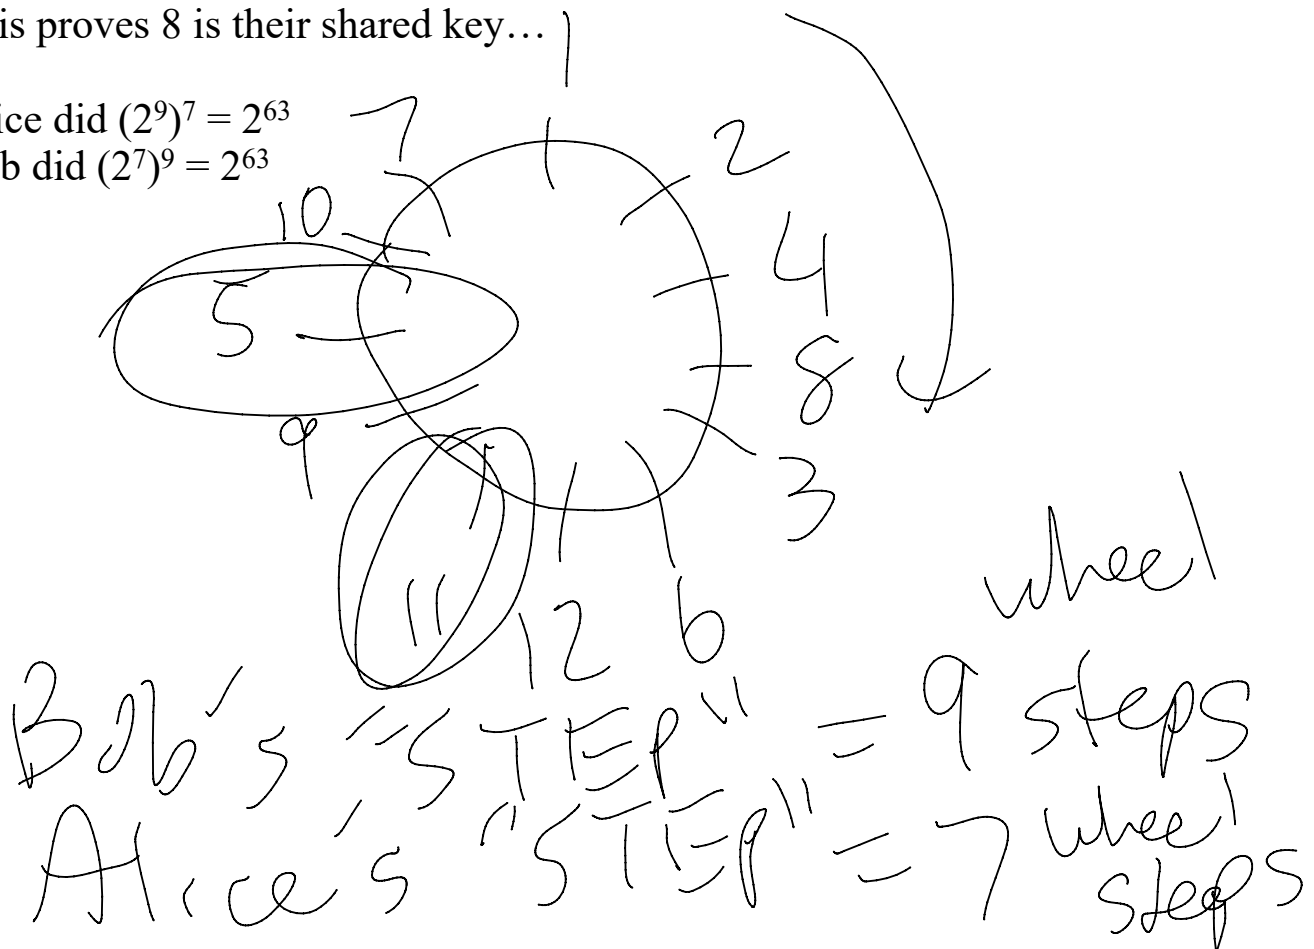 is proves 8 is their shared key…
ice did (2⁹)⁷ = 2⁶³
b did (2⁷)⁹ = 2⁶³
1
2
4
8
3
6
12
11
9
5
10
7
wheel
Bob's "STEP" = 9 steps
Alice's "STEP" = 7 wheel
steps